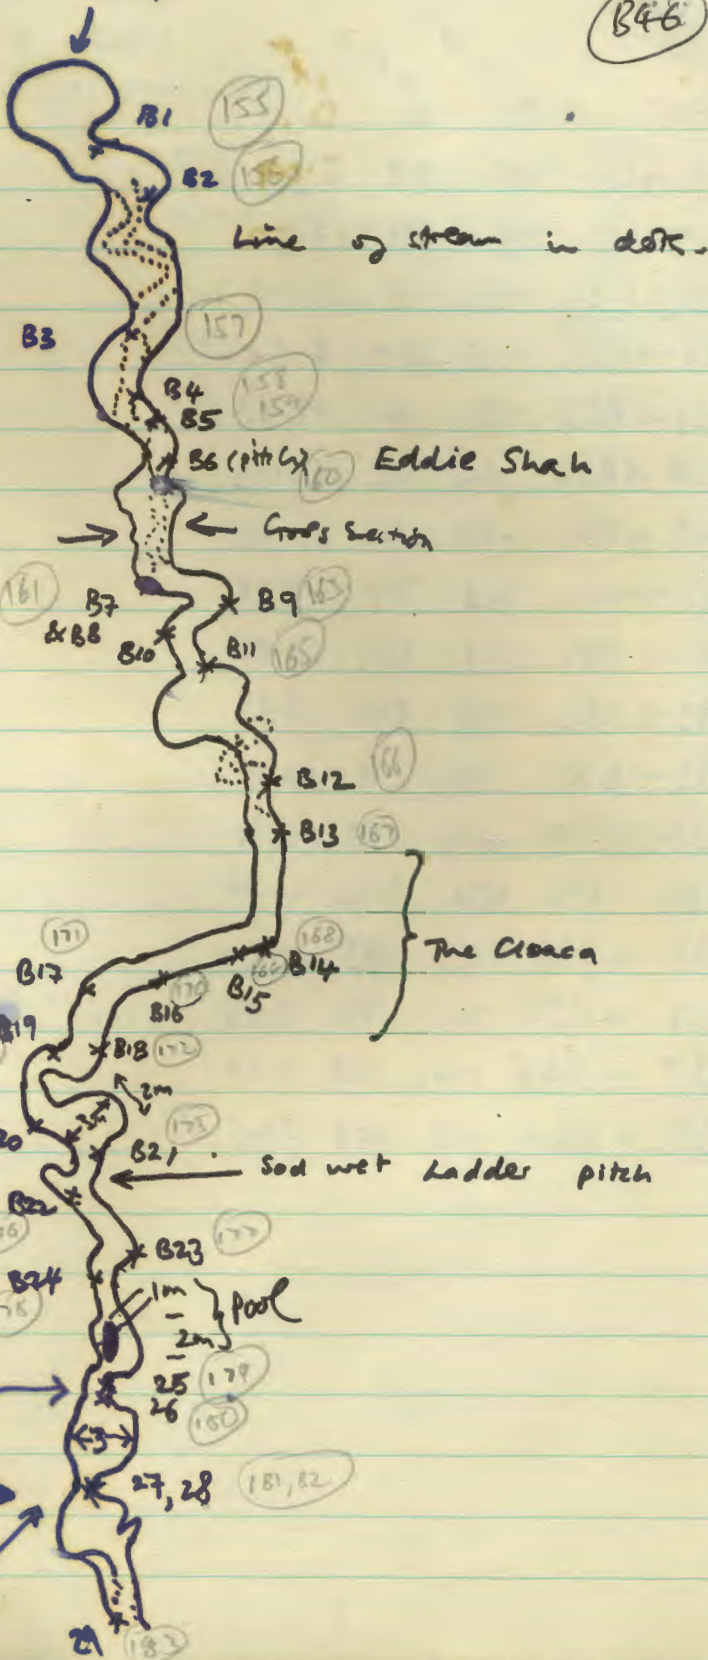 B46
B1 155
B2 156
Line of stream in dots.
B3 157
B4 158
B5 159
B6 (pitch) 160 Eddie Shah
Cross Section
161 B7 B9 163
& B8
B10 B11 165
B12 166
B13 167
The Cloaca
171 168
B17 B14
169
B15
B16 170
B19 B18 172
2m
20 175
B21
Sod wet Ladder pitch
B22
B23 177
B24 1m
Pool
2m
25 179
26 180
3
27, 28 181, 82
29 183